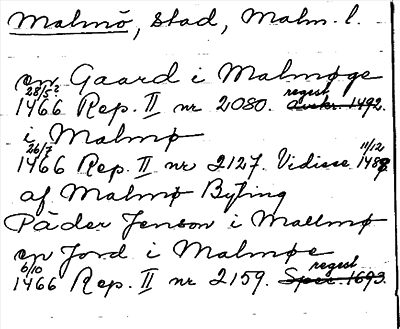 Malmö, stad, Malm. l.
en Gaard i Malmøge
28/5? regest
1466 Rep. II nr 2080. avskr. 1492.
i Malmø
26/7 11/12
1466 Rep. II nr 2127. Vidisse 1489.
af Malmø Byting
Päder Jenson i Maelmø
en Jord i Malmøe
6/10 regest
1466 Rep. II nr 2159. Spec. 1693.